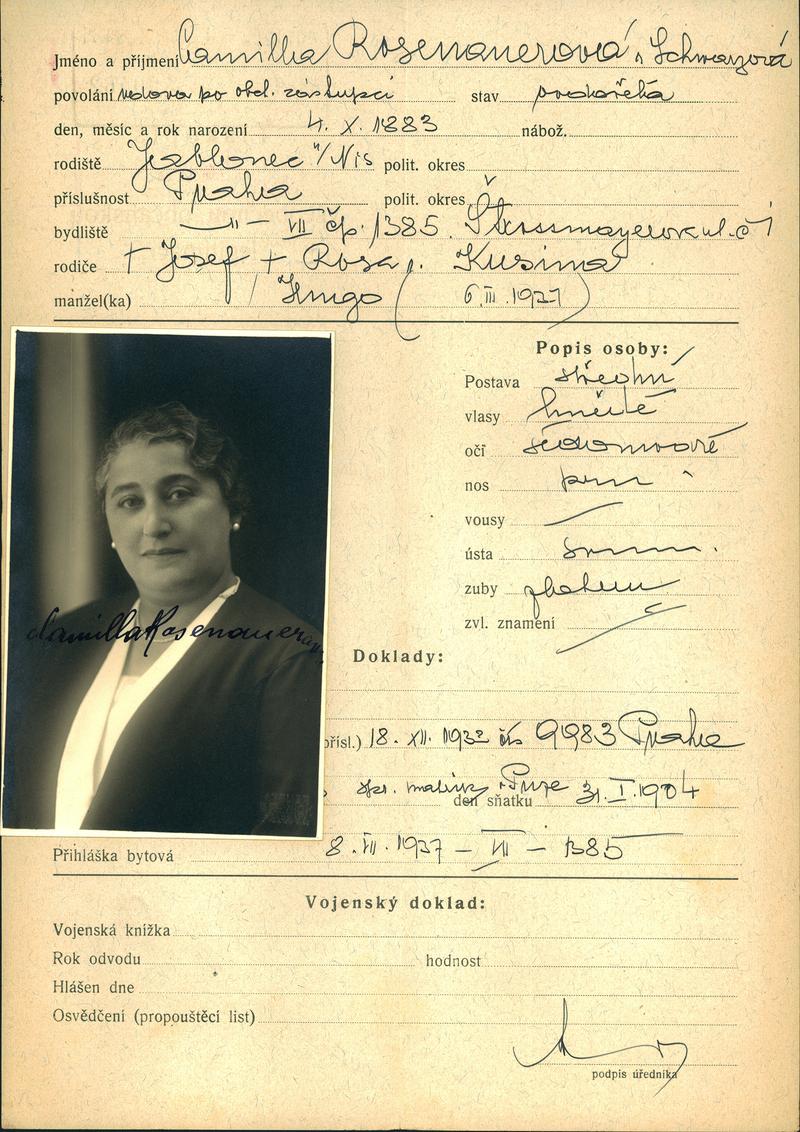 Jméno a příjmení Camilla Rosenauerová, Schwarzová
povolání vdova po obch. zástupci stav
den, měsíc a rok narození 4. X. 1883 nábož.
rodiště Jablonec n/Nis polit. okres
příslušnost Praha polit. okres
bydliště —"— VII čp. 1385. Štrossmayerova ul. č 1
rodiče † Josef + Rosa r. Kusima
manžel(ka) Hugo (6. III. 1927)
Popis osoby:
Postava střední
vlasy hnědé
oči
nos
vousy
ústa
zuby
zvl. znamení
Camilla Rosenauerova
Doklady:
přísl.) 18. XII. 1932 čís 9983 Praha
den sňatku 31. I. 1904
Přihláška bytová 8. VII. 1937 — VII — 1385
Vojenský doklad:
Vojenská knížka
Rok odvodu hodnost
Hlášen dne
Osvědčení (propouštěcí list)
podpis úředníka